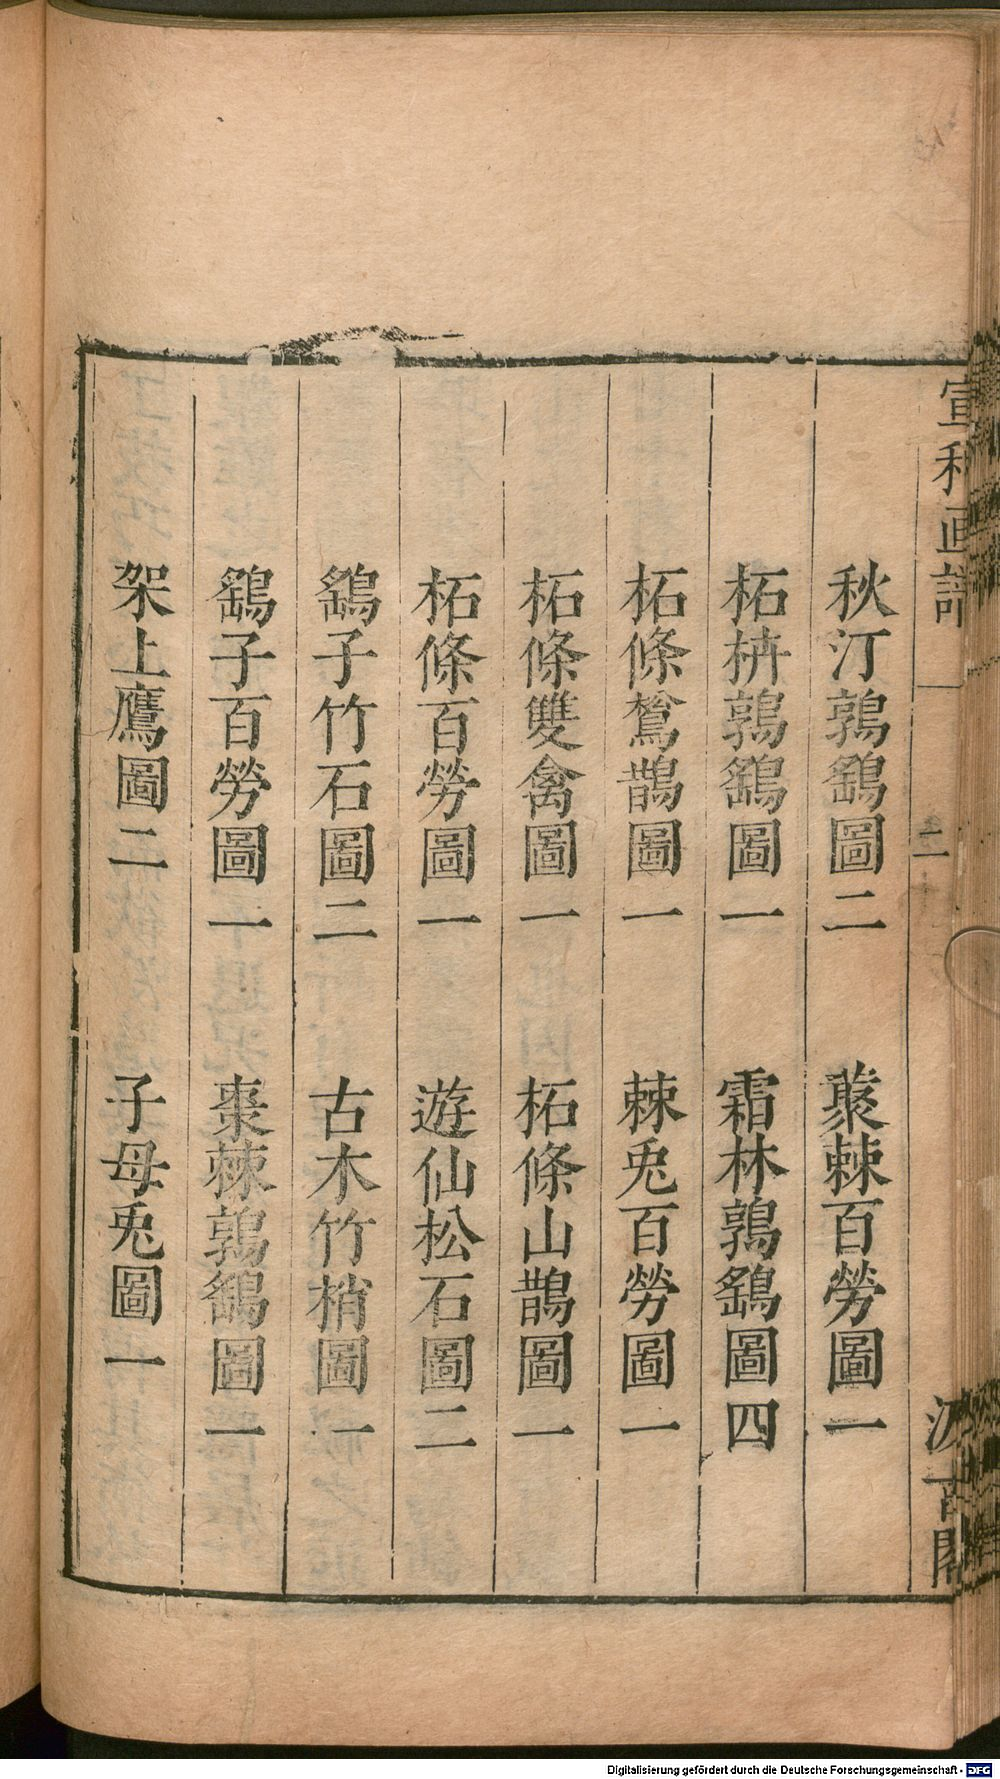 宣和画譜 二 汲古閣
秋汀鶉鷂圖二 叢棘百勞圖一
柘枿鶉鷂圖一 霜林鶉鷂圖四
柘條鴛鵲圖一 棘兎百勞圖一
柘條雙禽圖一 柘條山鵲圖一
柘條百勞圖一 遊仙松石圖二
鷂子竹石圖二 古木竹梢圖一
鷂子百勞圖一 棗棘鶉鷂圖一
架上鷹圖二 子母兎圖一
Digitalisierung gefördert durch die Deutsche Forschungsgemeinschaft - DFG